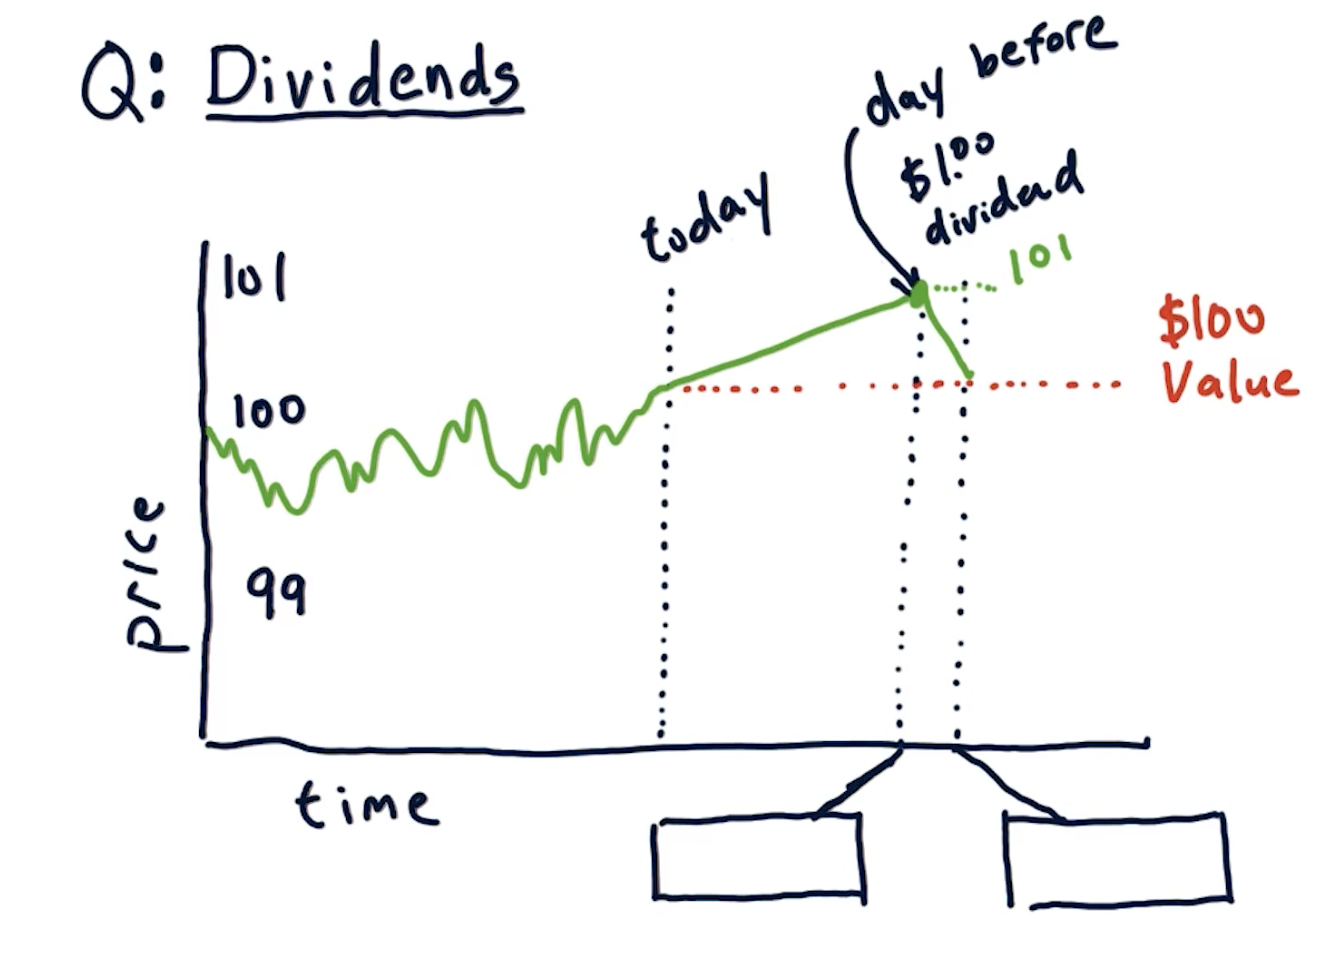 Q: Dividends
day before
$1.00
dividend
today
101
101
$100
Value
100
99
price
time